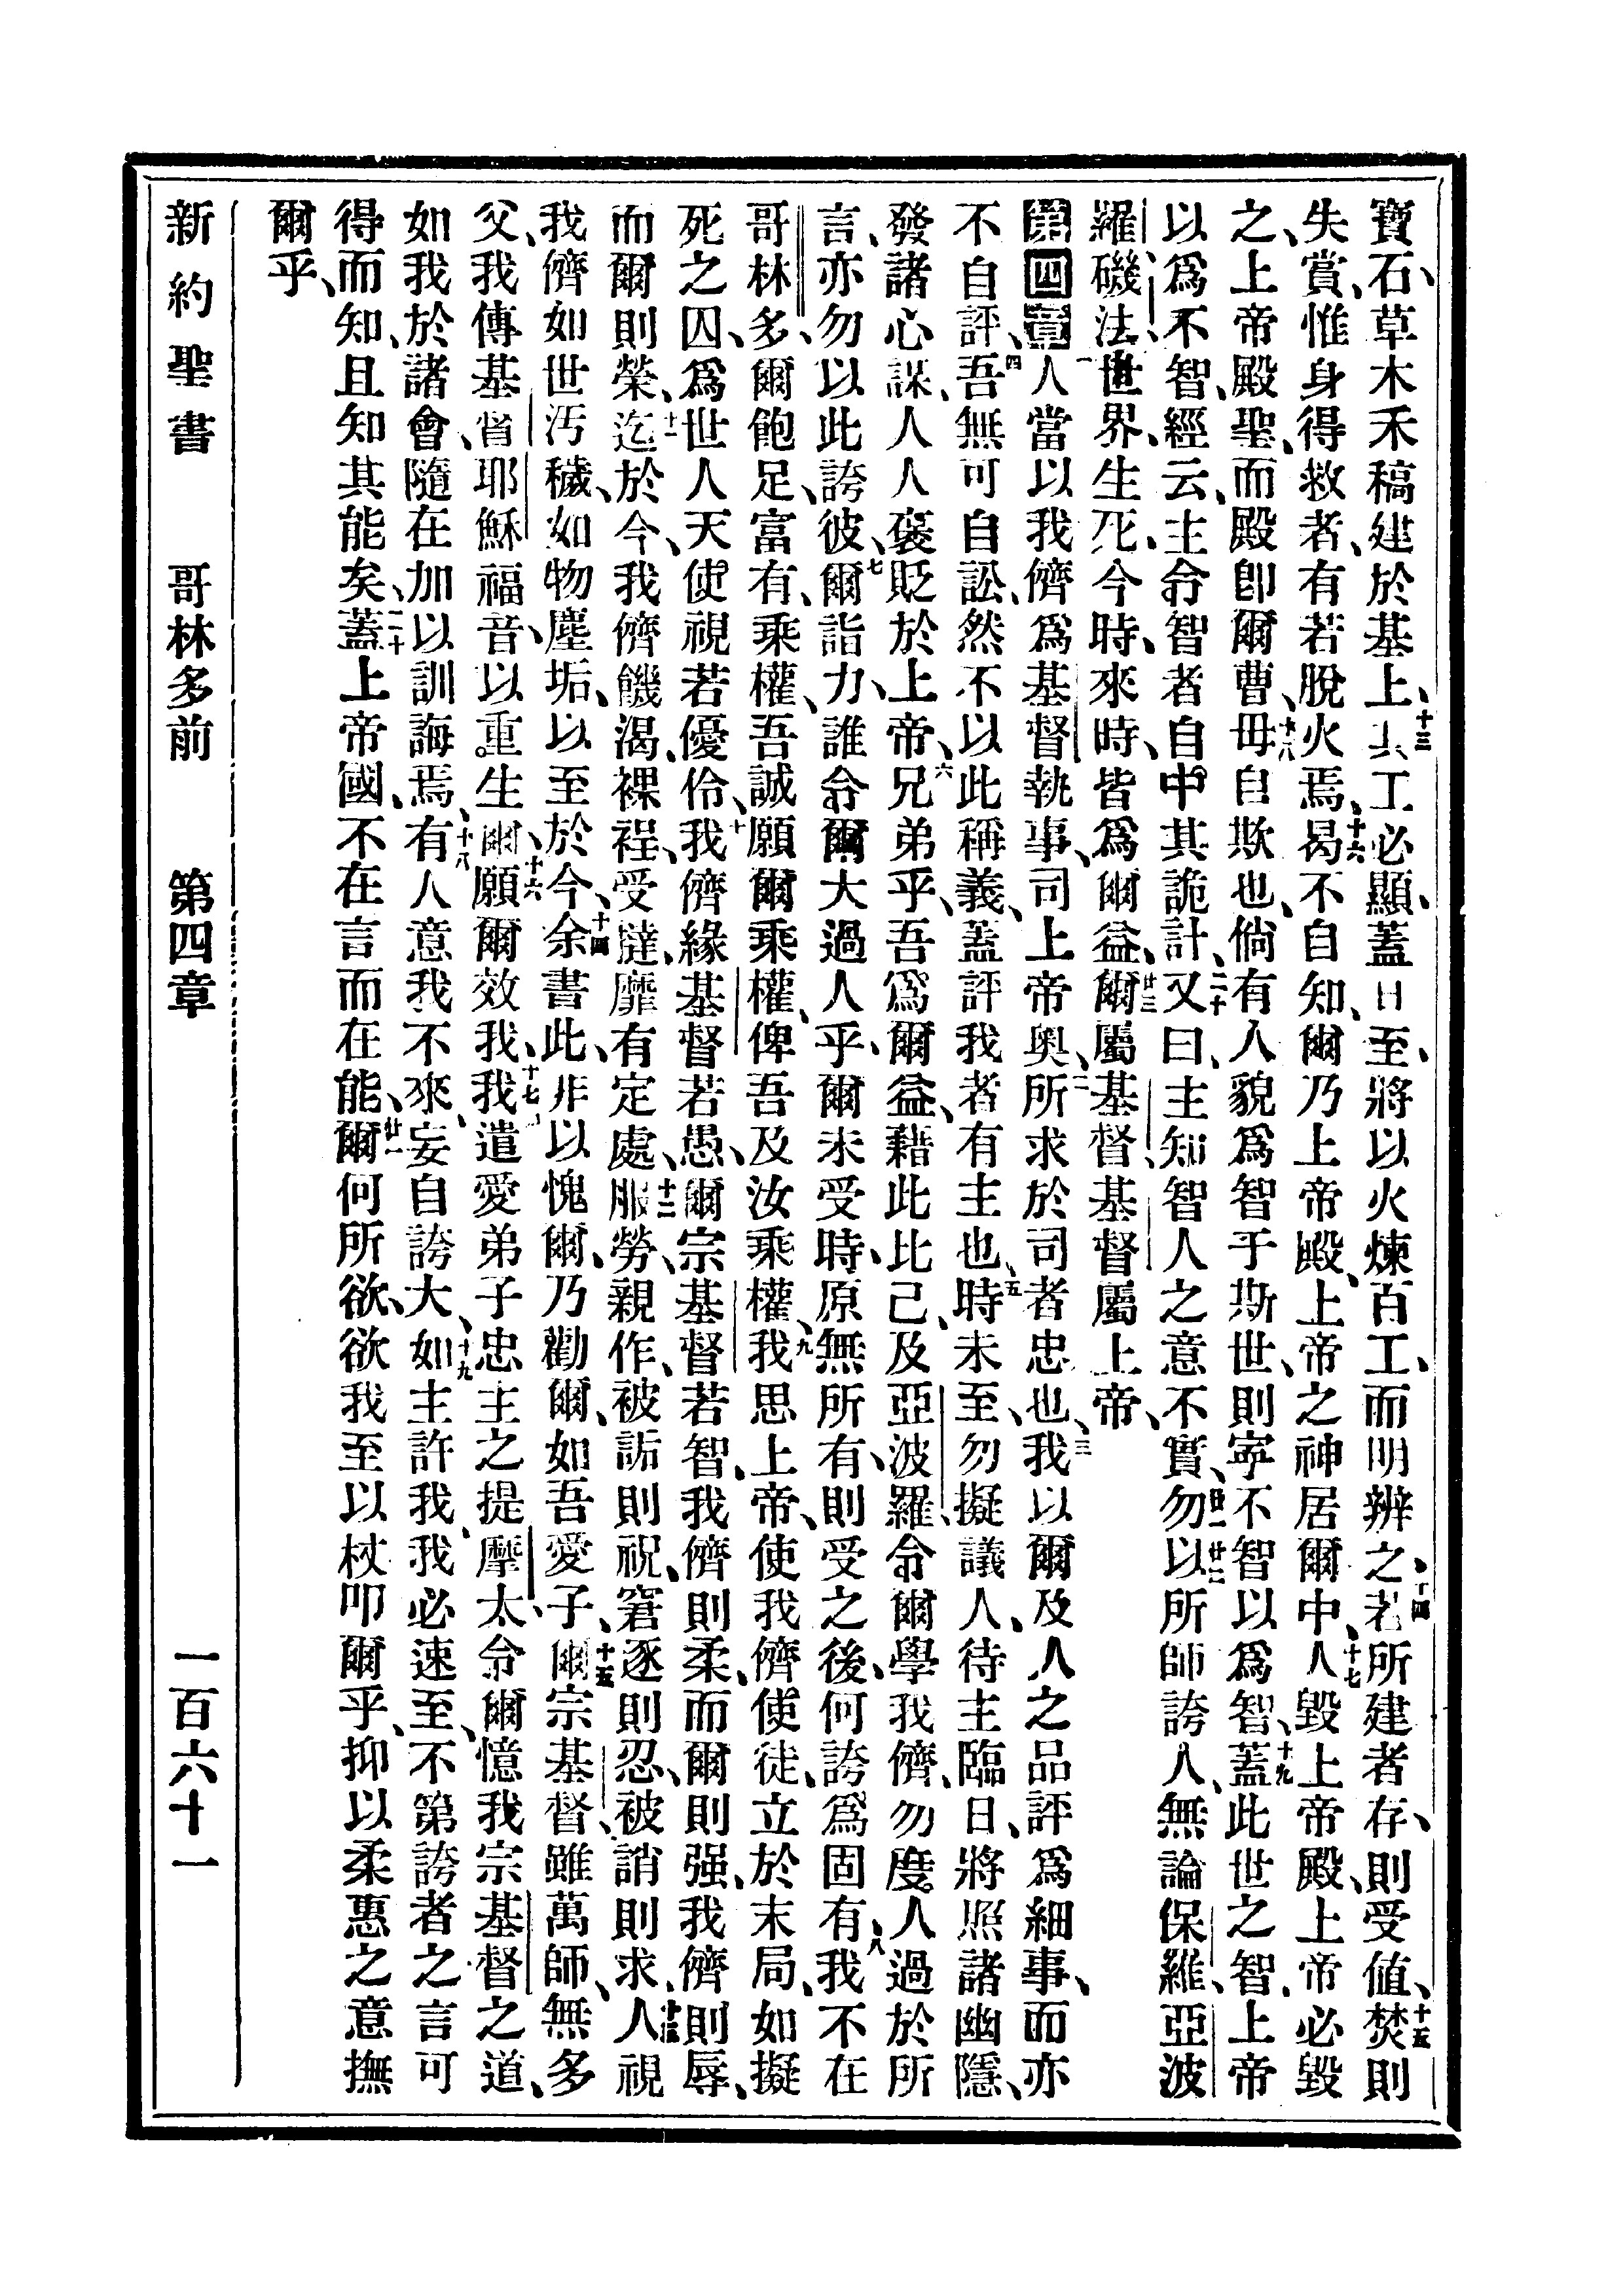 寶石、草木禾稿、建於基上、十三其工必顯、蓋日至、將以火煉百工、而明辨之、十四若所建者存、則受值、十五焚則
失賞、惟身得救者、有若脫火焉、十六曷不自知、爾乃上帝殿、上帝之神居爾中、十七人毀上帝殿、上帝必毀
之、上帝殿聖、而殿卽爾曹、十八毋自欺也、倘有人貌爲智于斯世、則寧不智以爲智、十九蓋此世之智、上帝
以爲不智、經云、主令智者自中其詭計、二十又曰、主知智人之意不實、廿一勿以所師誇人、廿二無論保羅、亞波
羅、磯法、世界、生死、今時、來時、皆爲爾益、廿三爾屬基督、基督屬上帝、
第四章一人當以我儕爲基督執事、司上帝奧、二所求於司者忠也、三我以爾及人之品評爲細事、而亦
不自評、四吾無可自訟、然不以此稱義、蓋評我者有主也、五時未至、勿擬議人、待主臨日、將照諸幽隱、
發諸心謀、人人褒貶於上帝、六兄弟乎、吾爲爾益、藉此比己及亞波羅、令爾學我儕、勿度人過於所
言、亦勿以此誇彼、七爾詣力、誰令爾大過人乎、爾未受時、原無所有、則受之後、何誇爲固有、八我不在
哥林多、爾飽足、富有、乘權、吾誠願爾乘權、俾吾及汝乘權、九我思上帝、使我儕使徒、立於末局、如擬
死之囚、爲世人天使視若優伶、十我儕緣基督若愚、爾宗基督若智、我儕則柔、而爾則强、我儕則辱、
而爾則榮、十一迄於今、我儕饑渴、裸裎、受撻、靡有定處、十二服勞、親作、被詬則祝、窘逐則忍、十三被誚則求、人視
我儕如世汚穢、如物塵垢、以至於今、十四余書此、非以愧爾、乃勸爾、如吾愛子、十五爾宗基督、雖萬師、無多
父、我傳基督耶穌福音、以重生爾、十六願爾效我、十七我遣愛弟子忠主之提摩太、令爾憶我宗基督之道、
如我於諸會、隨在加以訓誨焉、十八有人意我不來、妄自誇大、十九如主許我、我必速至、不第誇者之言可
得而知、且知其能矣、二十蓋上帝國、不在言而在能、廿一爾何所欲、欲我至以杖叩爾乎、抑以柔惠之意撫
爾乎、
新約聖書 哥林多前 第四章 一百六十一